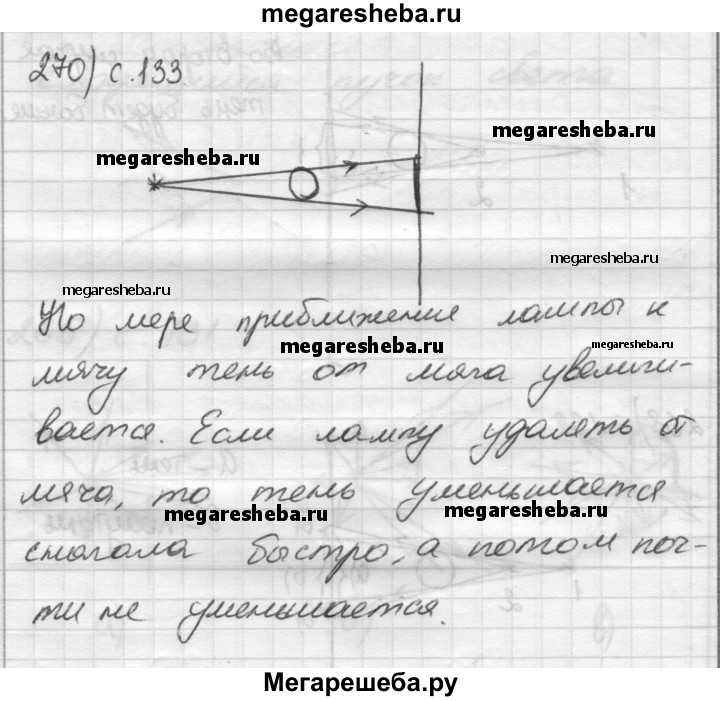 megaresheba.ru
270) с.133
megaresheba.ru
megaresheba.ru
megaresheba.ru
megaresheba.ru
По мере приближение лампы к
megaresheba.ru
megaresheba.ru
мячу тень от мяча увеличи-
вается. Если лампу удалять от
мяча, то тень уменьшается
megaresheba.ru
megaresheba.ru
сначала быстро, а потом поч-
ти не уменьшается.
Мегарешеба.ру